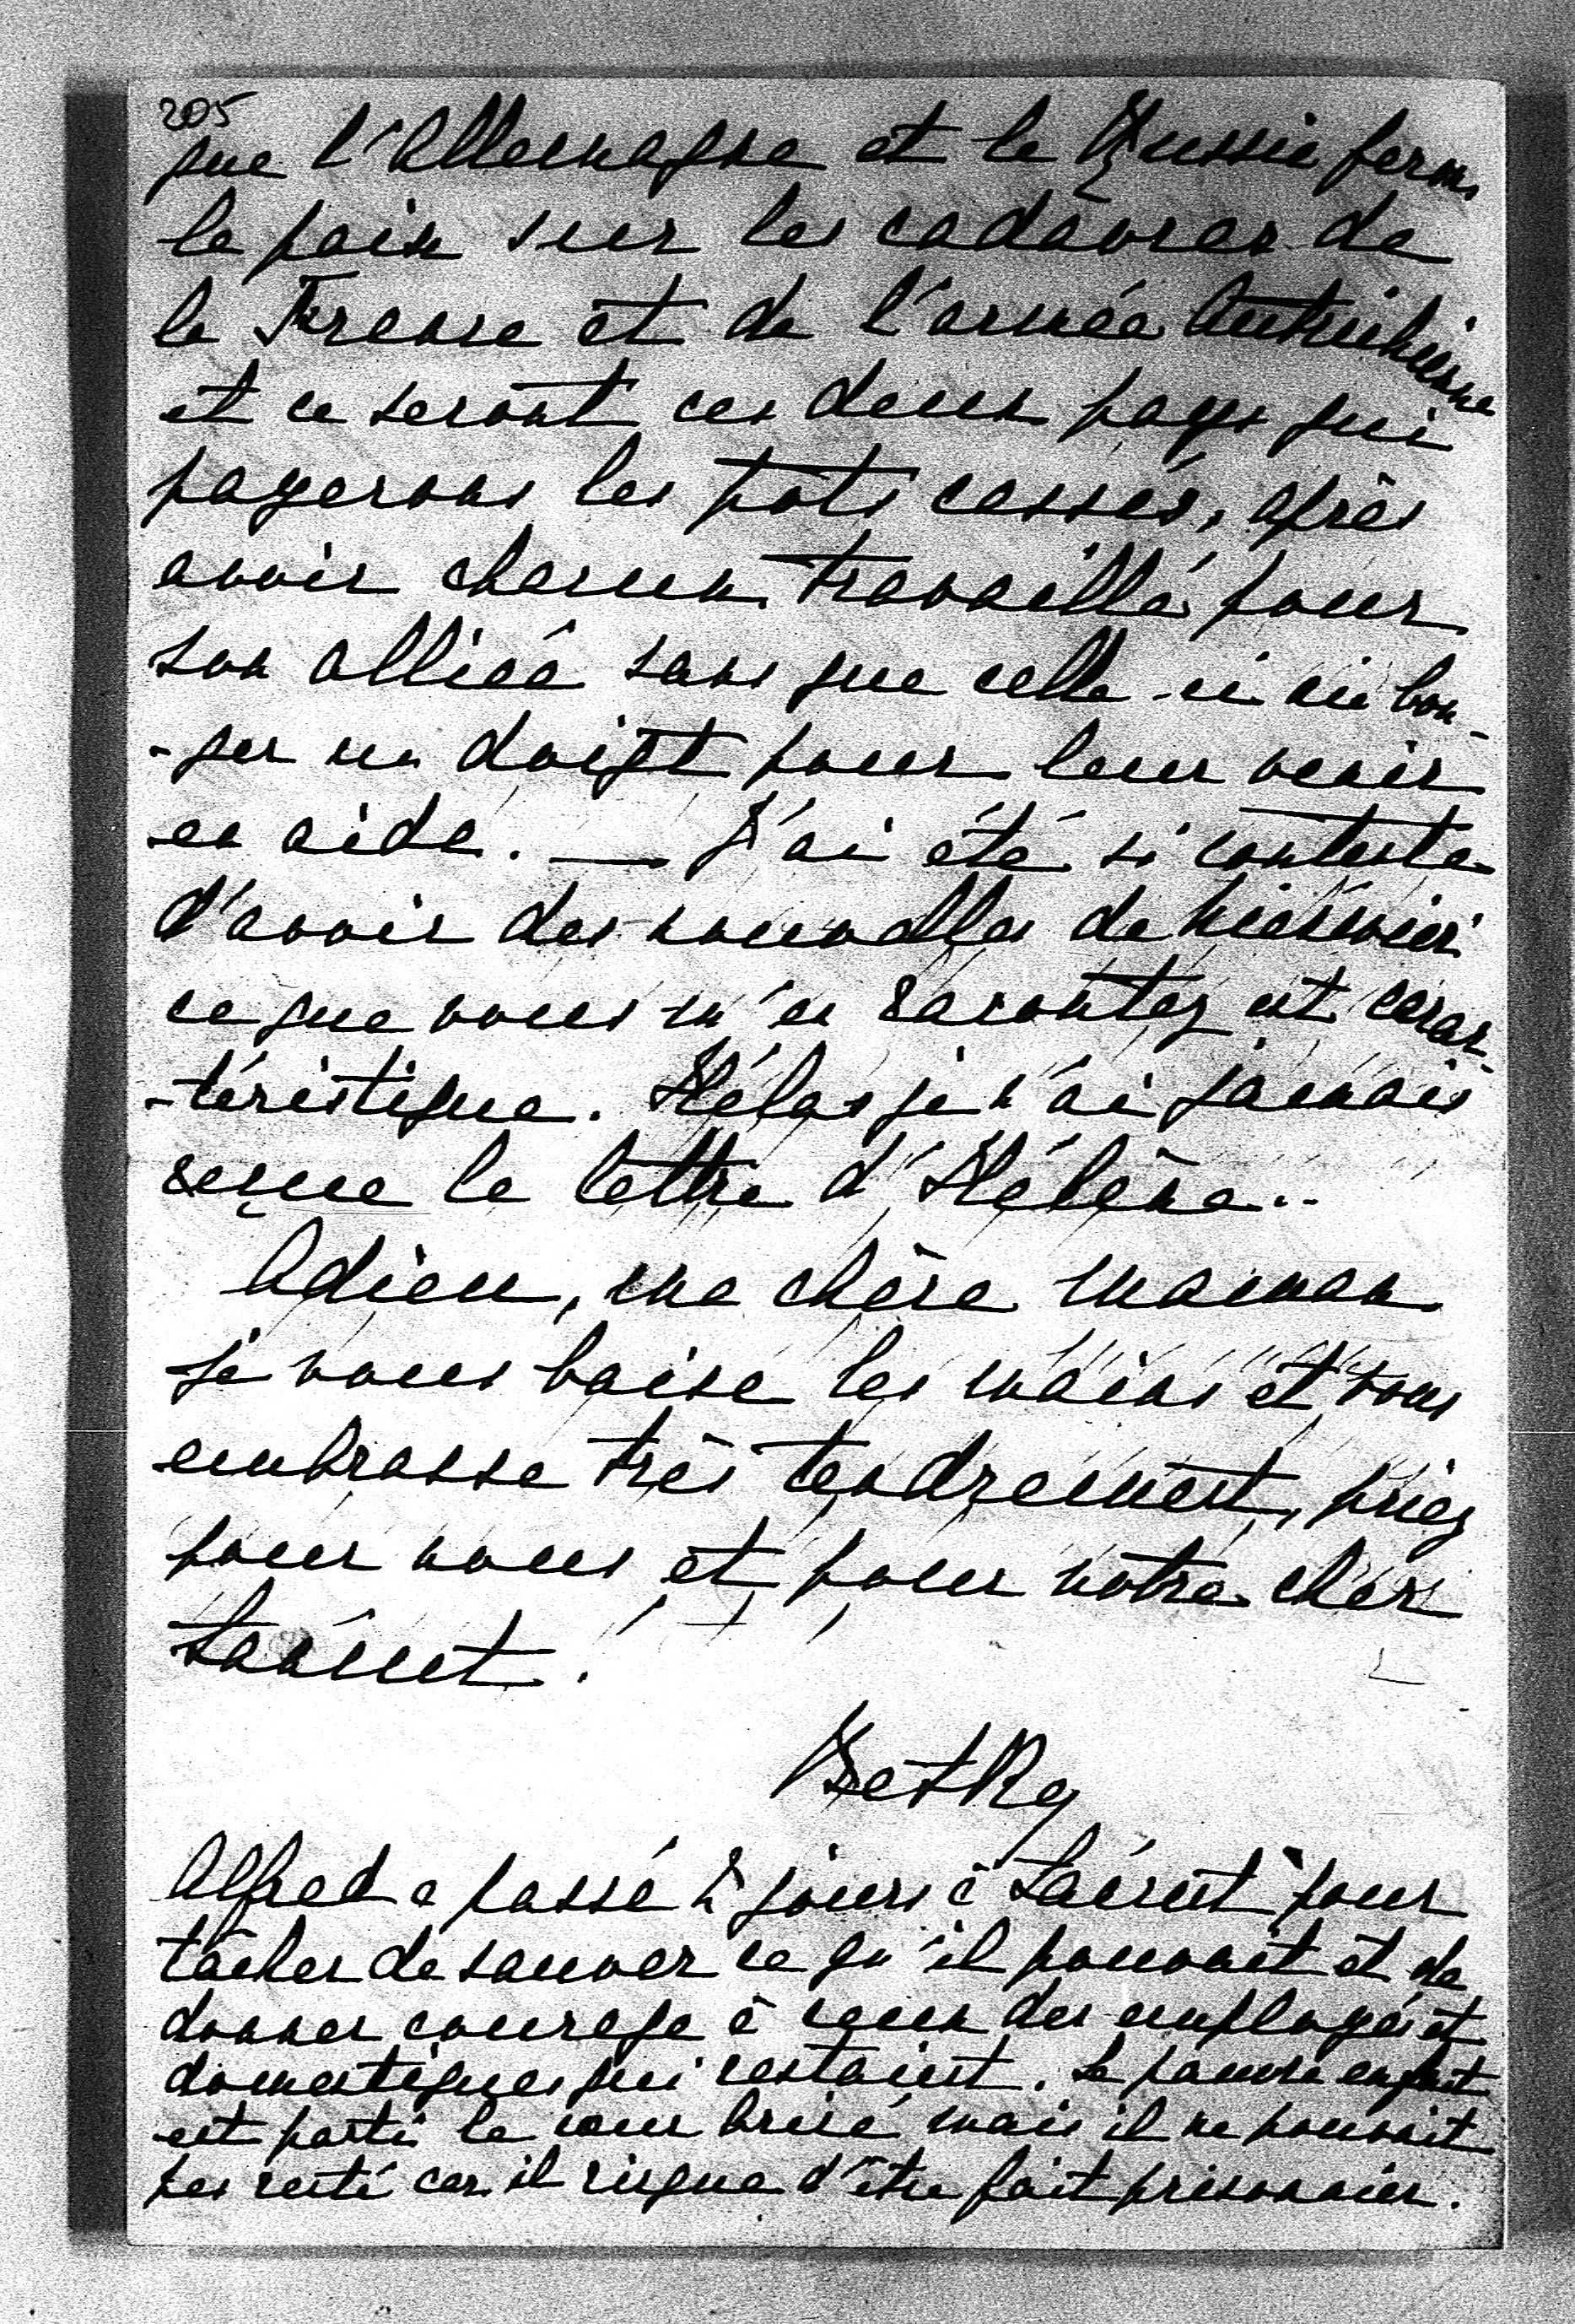 205
que l'Allemagne et la Russie ferons
la paix sur les cadâvres de
la France et de l'armée Autrichienne
et ce seront ces deux pays qui
payerons les pots cassés, après
avoir chacun travaillé pour
son alliée sans que celle-ci ai bou-
-ger un doigt pour leur venir
en aide. — J'ai été si contente
d'avoir des nouvelles de
ce que vous m'en racontez est carac-
-téristique. Hélas je n'ai jamais
reçue la lettre d'Hélène..
Adieu, ma chère maman
je vous baise les mains et vous
embrasse très tendrement, priez
pour nous et pour notre cher
Łańcut!
Betka
Alfred a passé 2 jours à Łańcut pour
tâcher de sauver ce qu'il pouvait et de
donner courage à ceux des employés et
domestiques qui restaient. Le pauvre enfant
est parti le cœur brisé, mais il ne pouvait
pas resté car il risque d'être fait prisonnier.